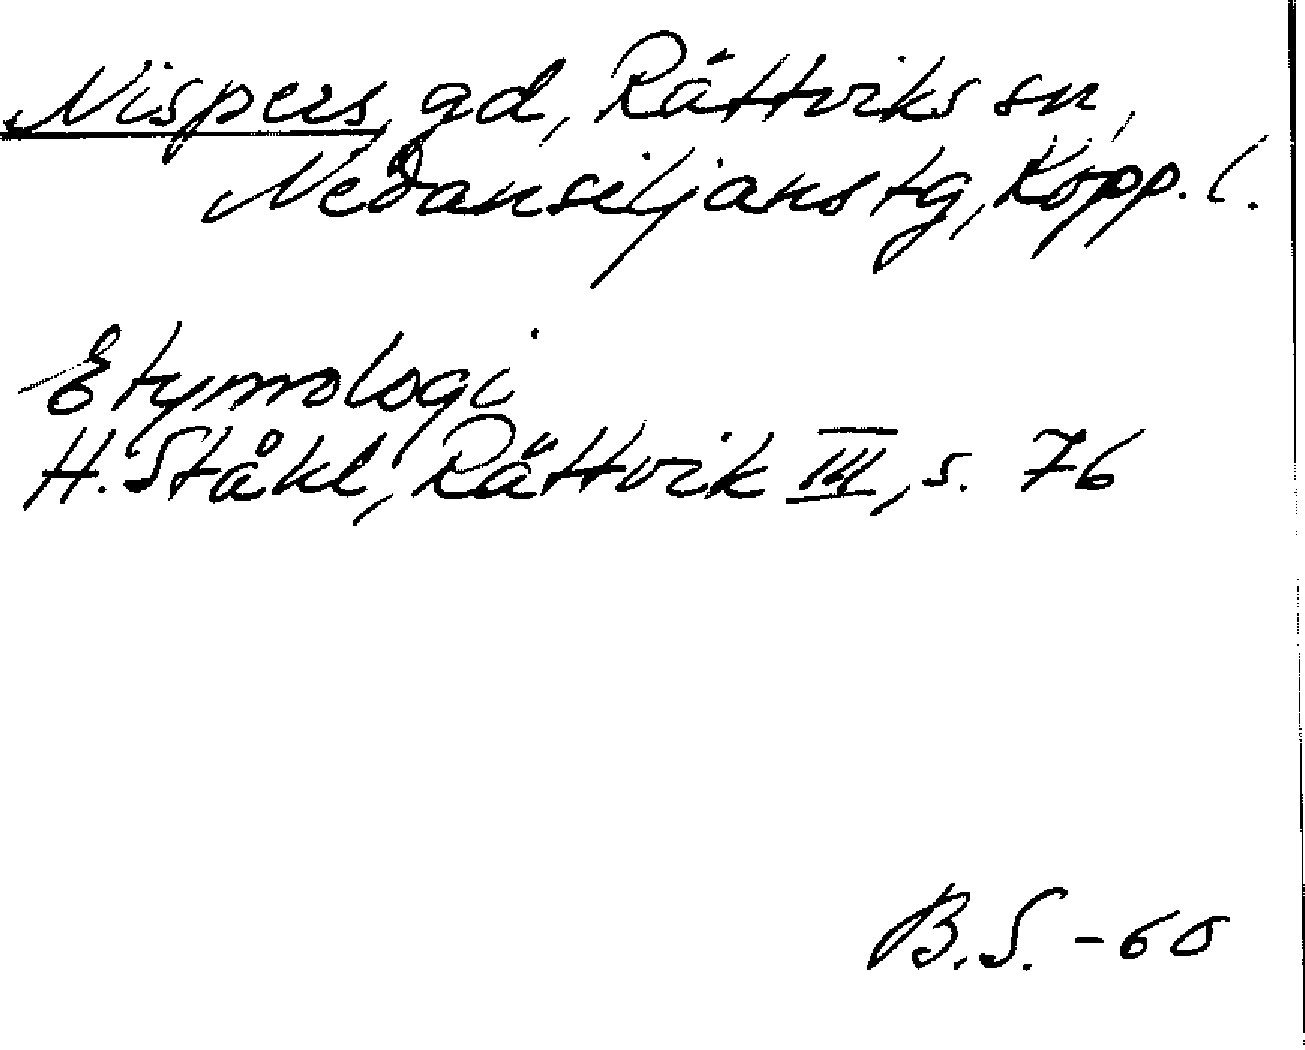 Nispers, gd, Rättviks sn,
Nedansiljans tg, Kopp. l.
Etymologi
H. Ståhl, Rättvik III, s. 76
B. S. -60